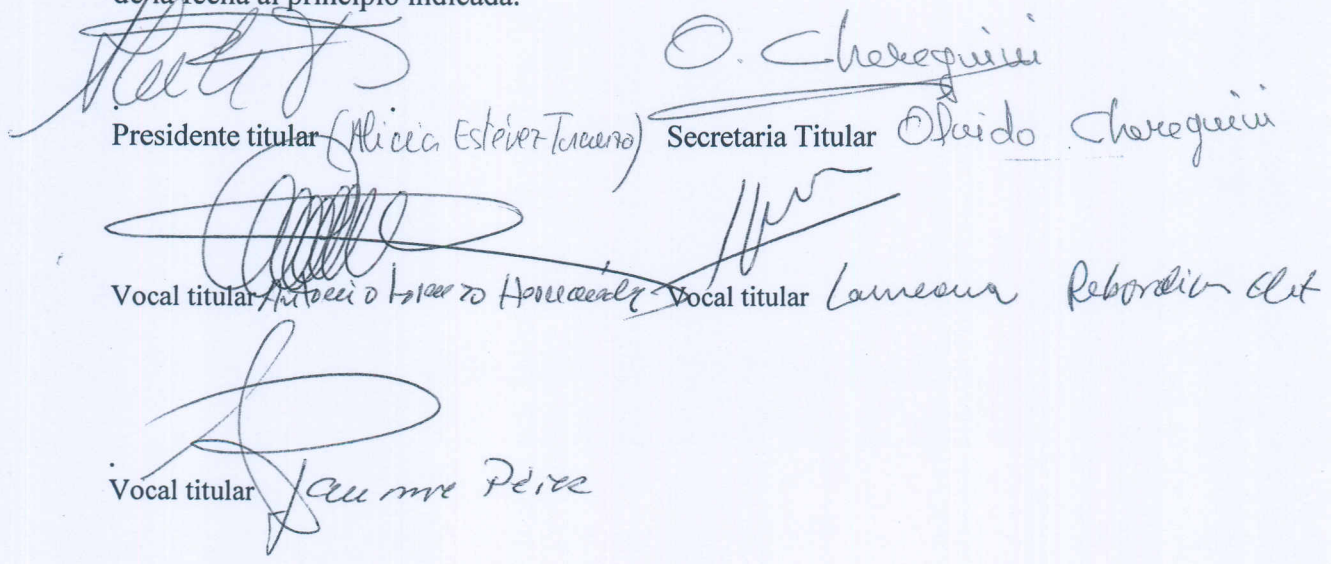 de la fecha al principio indicada.
O. Chereguini
Presidente titular (Alicia Estévez Secretaria Titular Olvido Chereguini
Vocal titular Antonio Lorenzo Hernández Vocal titular
Vocal titular Jaume Pérez